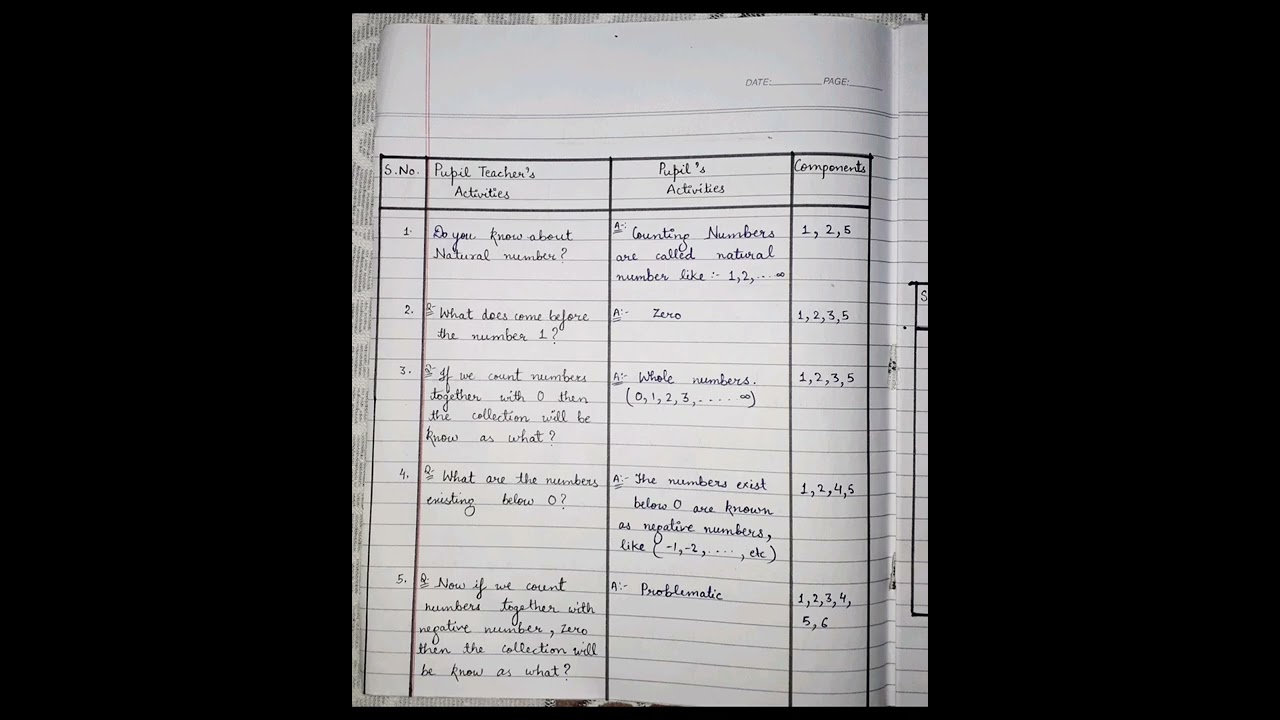 DATE:________ PAGE:______
S.No. Pupil Teacher's Activities Pupil's Activities Components
1. Do you know about Natural number? A:- Counting Numbers are called natural number like :- 1,2,....∞ 1, 2, 5
2. Q:- What does come before the number 1? A:- Zero 1,2,3,5
3. Q:- If we count numbers together with 0 then the collection will be know as what? A:- Whole numbers. (0,1,2,3,.....∞) 1,2,3,5
4. Q:- What are the numbers existing below 0? A:- The numbers exist below 0 are known as negative numbers, like (-1,-2,....,etc) 1,2,4,5
5. Q:- Now if we count numbers together with negative number, zero then the collection will be know as what? A:- Problematic 1,2,3,4, 5,6
S